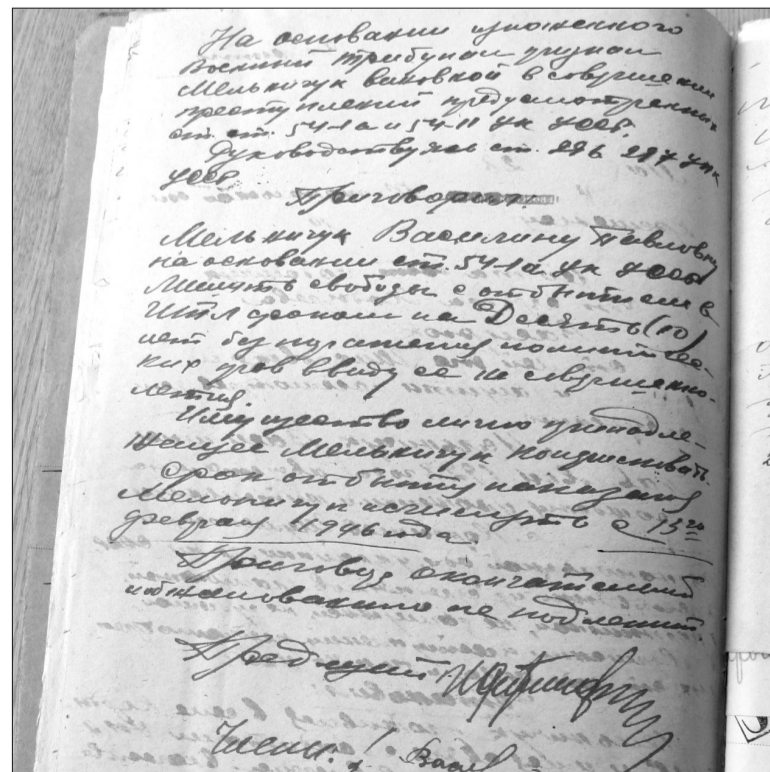 На основании изложенного
военный трибунал признал
Мельничук виновной в совершении
преступлений предусмотренных
ст. ст. 54-1а и 54-11 УК УССР.
Руководствуясь ст. 296 297 УПК
УССР
Приговорил:
Мельничук Василину Павловну
на основании ст. 54-1а УК УССР
лишить свободы с отбытием в
ИТЛ сроком на Десять (10)
лет без поражения политичес-
ких прав ввиду ее не совершенно-
летия.
Имущество лично принадле-
жащее Мельничук конфисковать.
Срок отбытия наказания
Мельничук исчислять с 13го
февраля 1946 года.
Приговор окончательный
и обжалованию не подлежит.
Председ
Члены: